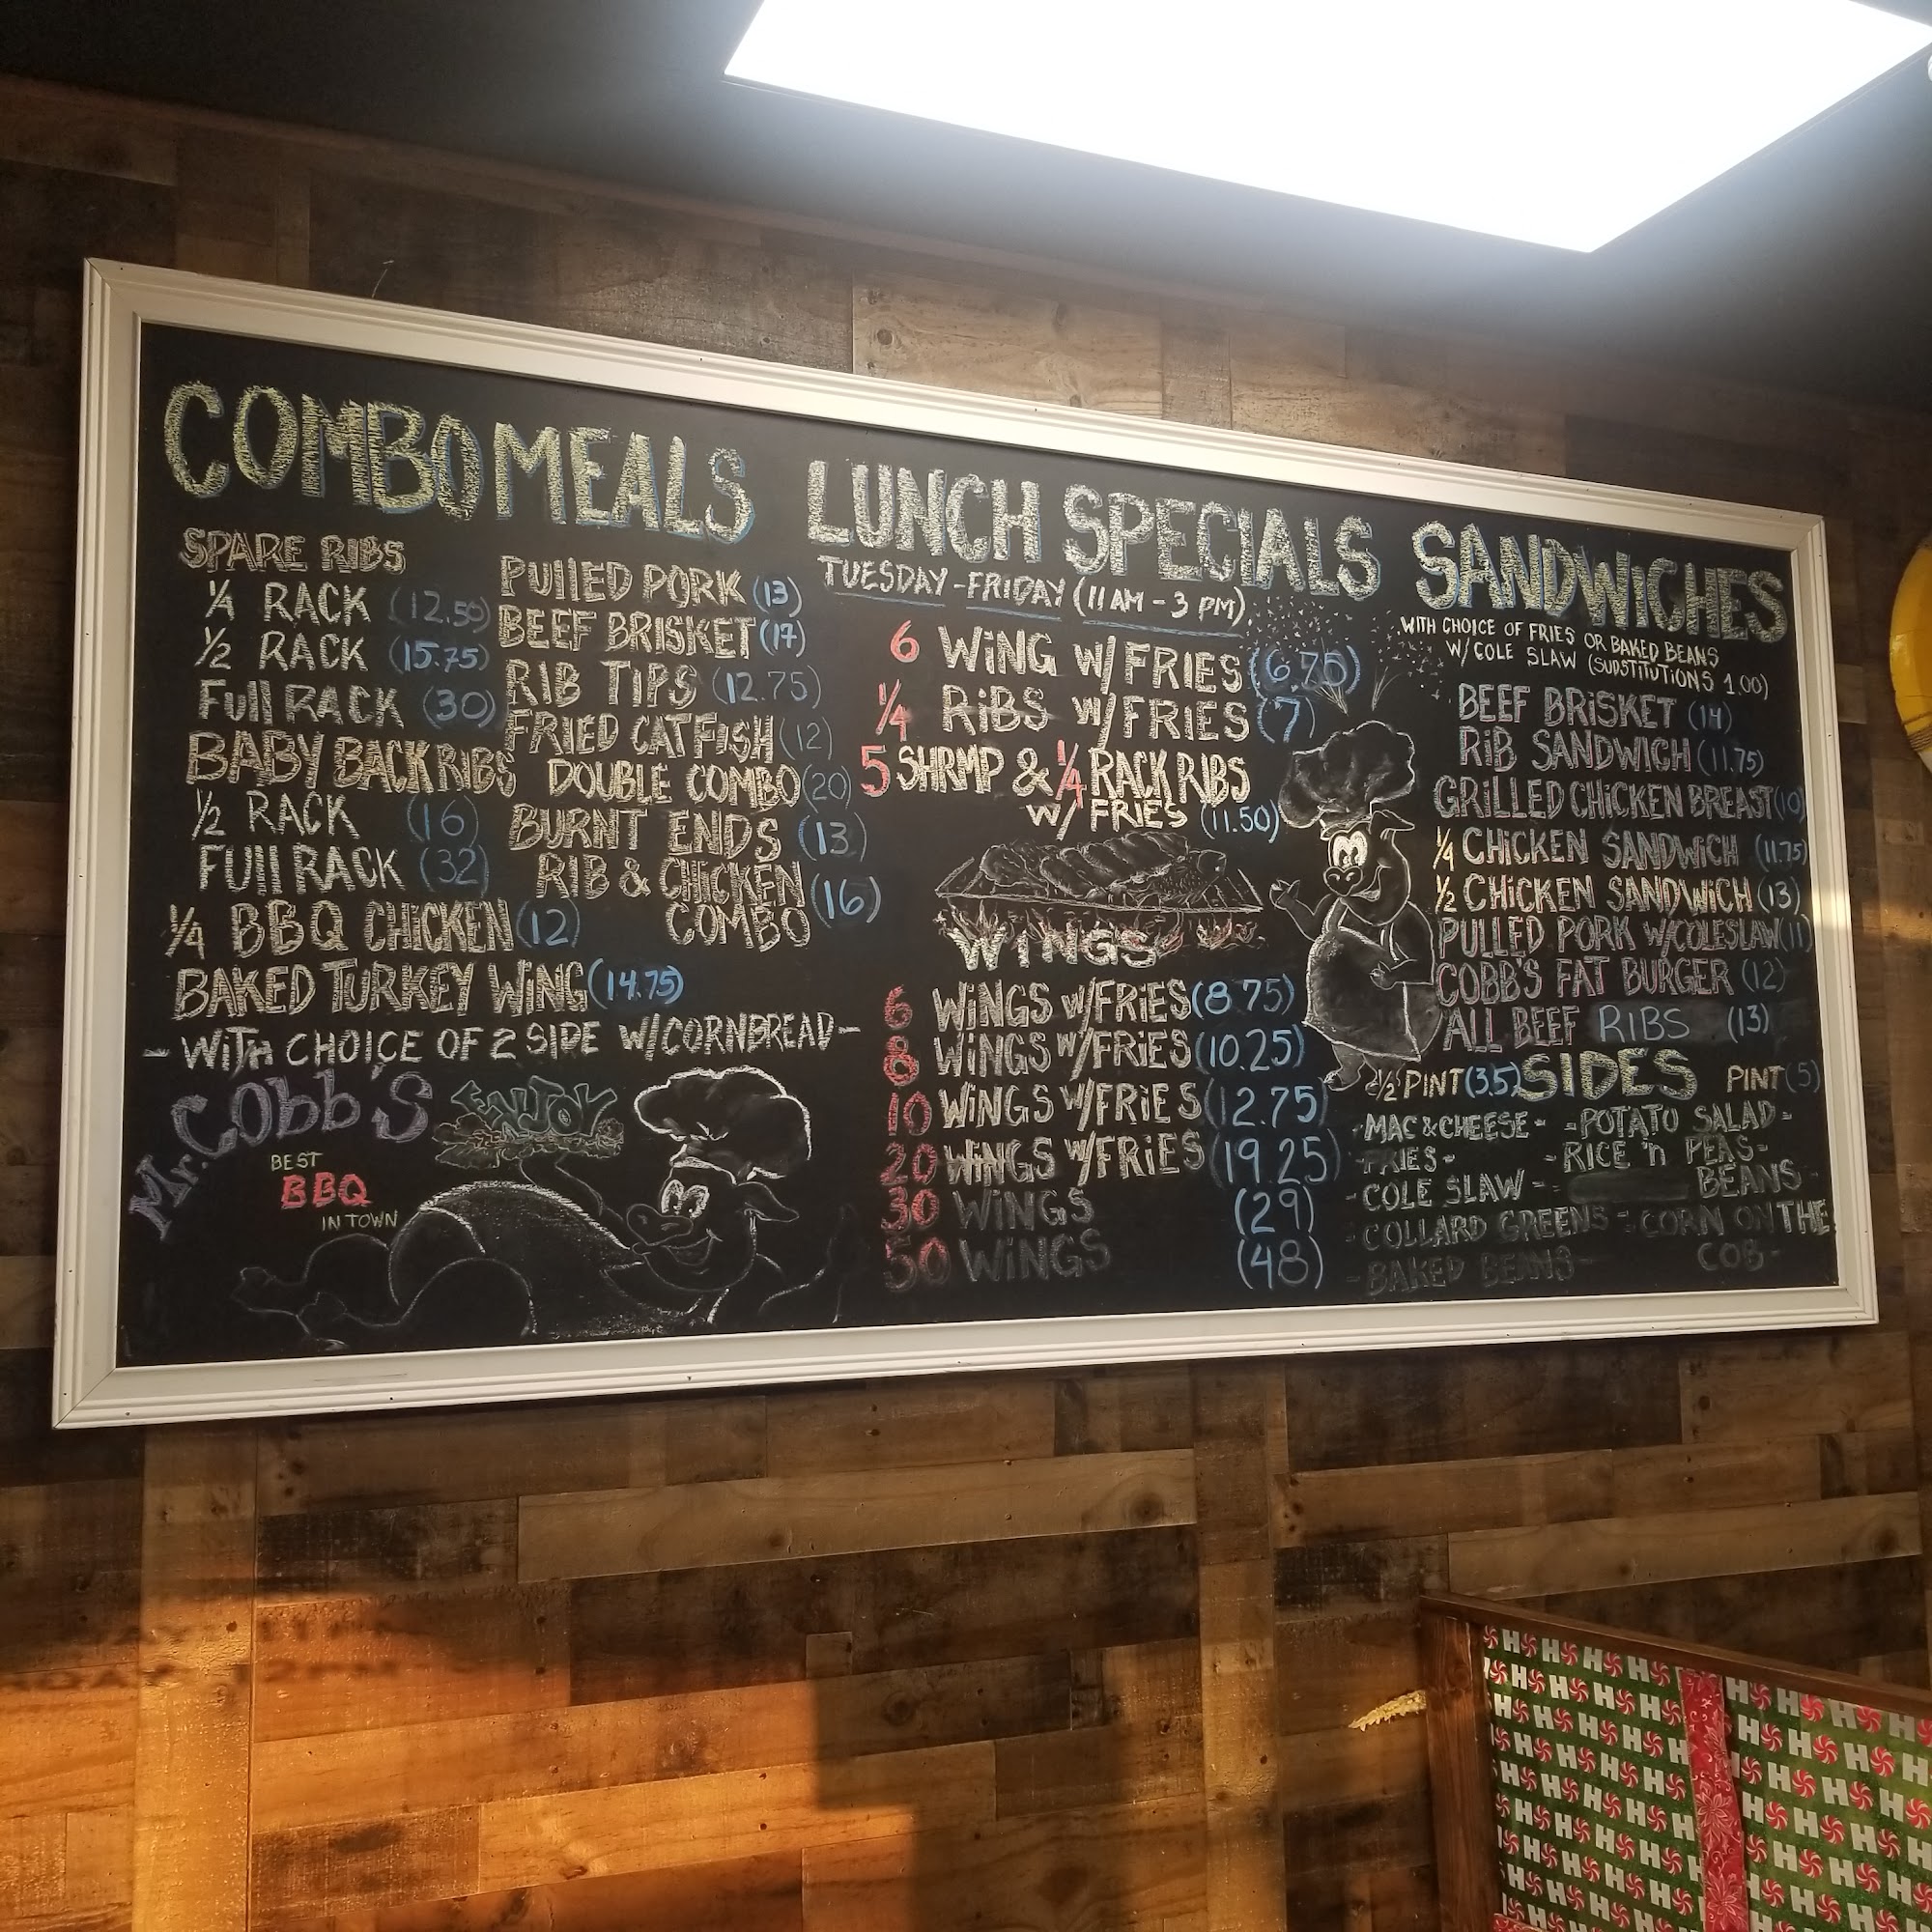 COMBO MEALS
SPARE RIBS
1/4 RACK (12.50)
1/2 RACK (15.75)
FUll RACK (30)
BABY BACK RIBS
1/2 RACK (16)
FUll RACK (32)
1/4 BBQ CHiCKEN (12)
BAKED TURKEY WiNG (14.75)
PUllED PORK (13)
BEEF BRISKET (17)
RIB TIPS (12.75)
FRIED CATFISH (12)
DOUBLE COMBO (20)
BURNT ENDS (13)
RIB & CHiCKEN
COMBO (16)
- WiTh CHOICE OF 2 SIDE W/CORNBREAD -
Mr. Cobb's
BEST
BBQ
IN TOWN
ENJOY
LUNCH SPECIALS
TUESDAY - FRIDAY (11 AM - 3 PM)
6 WiNG W/FRIES (6.75)
1/4 RiBS W/FRIES (7)
5 SHRMP & 1/4 RACK RIBS
W/ FRIES (11.50)
WiNGS
6 WiNGS W/FRiES (8.75)
8 WiNGS W/FRiES (10.25)
10 WiNGS W/FRiES (12.75)
20 WiNGS W/FRiES (19.25)
30 WiNGS (29)
50 WiNGS (48)
SANDWICHES
WITH CHOICE OF FRIES OR BAKED BEANS
W/ COLE SLAW (SUBSTITUTIONS 1.00)
BEEF BRiSKET (14)
RiB SANDWICH (11.75)
GRiLLED CHiCKEN BREAST (10)
1/4 CHiCKEN SANDWiCH (11.75)
1/2 CHiCKEN SANDWiCH (13)
PULLED PORK W/COLESLAW (11)
COBB'S FAT BURGER (12)
ALL BEEF RIBS (13)
1/2 PINT (3.5) SIDES PINT (5)
- MAC & CHEESE - - POTATO SALAD -
- FRIES - - RICE 'n PEAS -
- COLE SLAW - - BEANS -
- COLLARD GREENS - - CORN ON THE
- BAKED BEANS - COB -